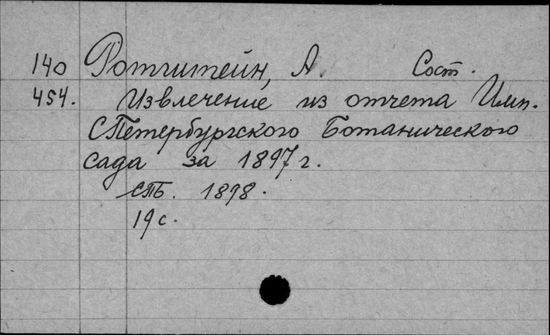 140 Ротштейн, А. Сост.
454. Извлечение из отчета Имп.
С.Петербургского Ботанического
сада за 1897 г.
СПб. 1898.
19 с.